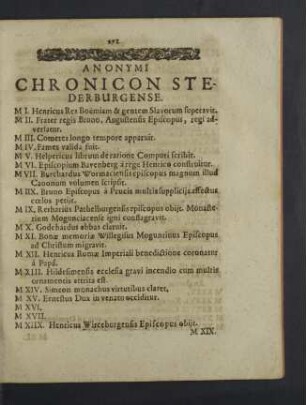 ANONYMI
CHRONICON STE-
DERBURGENSE.
M I. Henricus Rex Boëmiam & gentem Slavorum superavit.
M II. Frater regis Bruno, Augustensis Episcopus, regi ad-
versatur.
M III. Cometes longo tempore apparuit.
M IV. Fames valida fuit.
M V. Helpricus librum de ratione Computi scribit.
M VI. Episcopium Bavenberg à rege Henrico construitur.
M VII. Burchardus Wormaciensis episcopus magnum illud
Canonum volumen scripsit.
M IIX. Bruno Episcopus à Prucis multis suppliciis affectus
cœlos petiit.
M IX. Retharius Pathelburgensis episcopus obijt. Monaste-
rium Mogunciacense igni conflagravit.
M X. Godehardus abbas claruit.
M XI. Bonæ memoriæ Willegisus Moguntinus Episcopus
ad Christum migravit.
M XII. Henricus Romæ Imperiali benedictione coronatur
à Papâ.
M XIII. Hildesimensis ecclesia gravi incendio cum multis
ornamentis attrita est.
M XIV. Simeon monachus virtutibus claret,
M XV. Ernestus Dux in venatu occiditur.
M XVI,
M XVII.
M XIIX. Henricus Wirceburgensis Episcopus obijt.
M XIX.